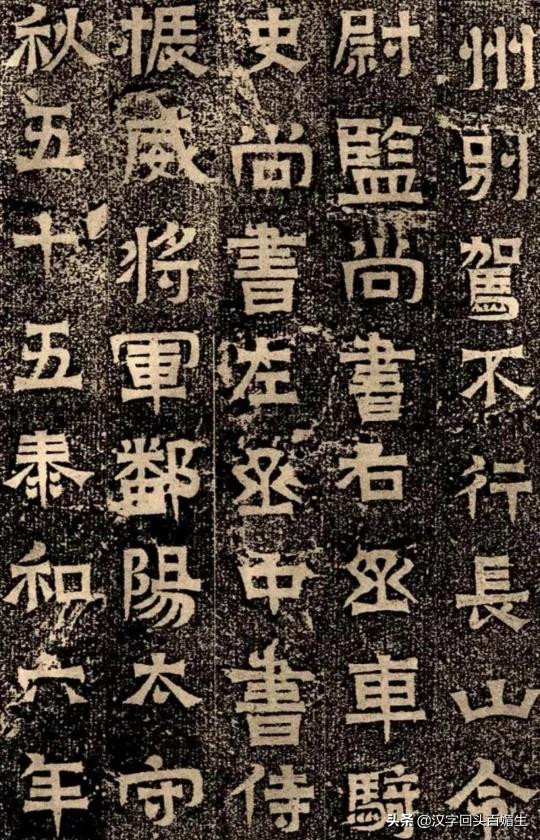 州別駕不行長山令
尉監尚書右丞車騎
史尚書左丞中書侍
振威将軍鄱陽太守
秋五十五泰和六年
头条 @汉字回头百媚生